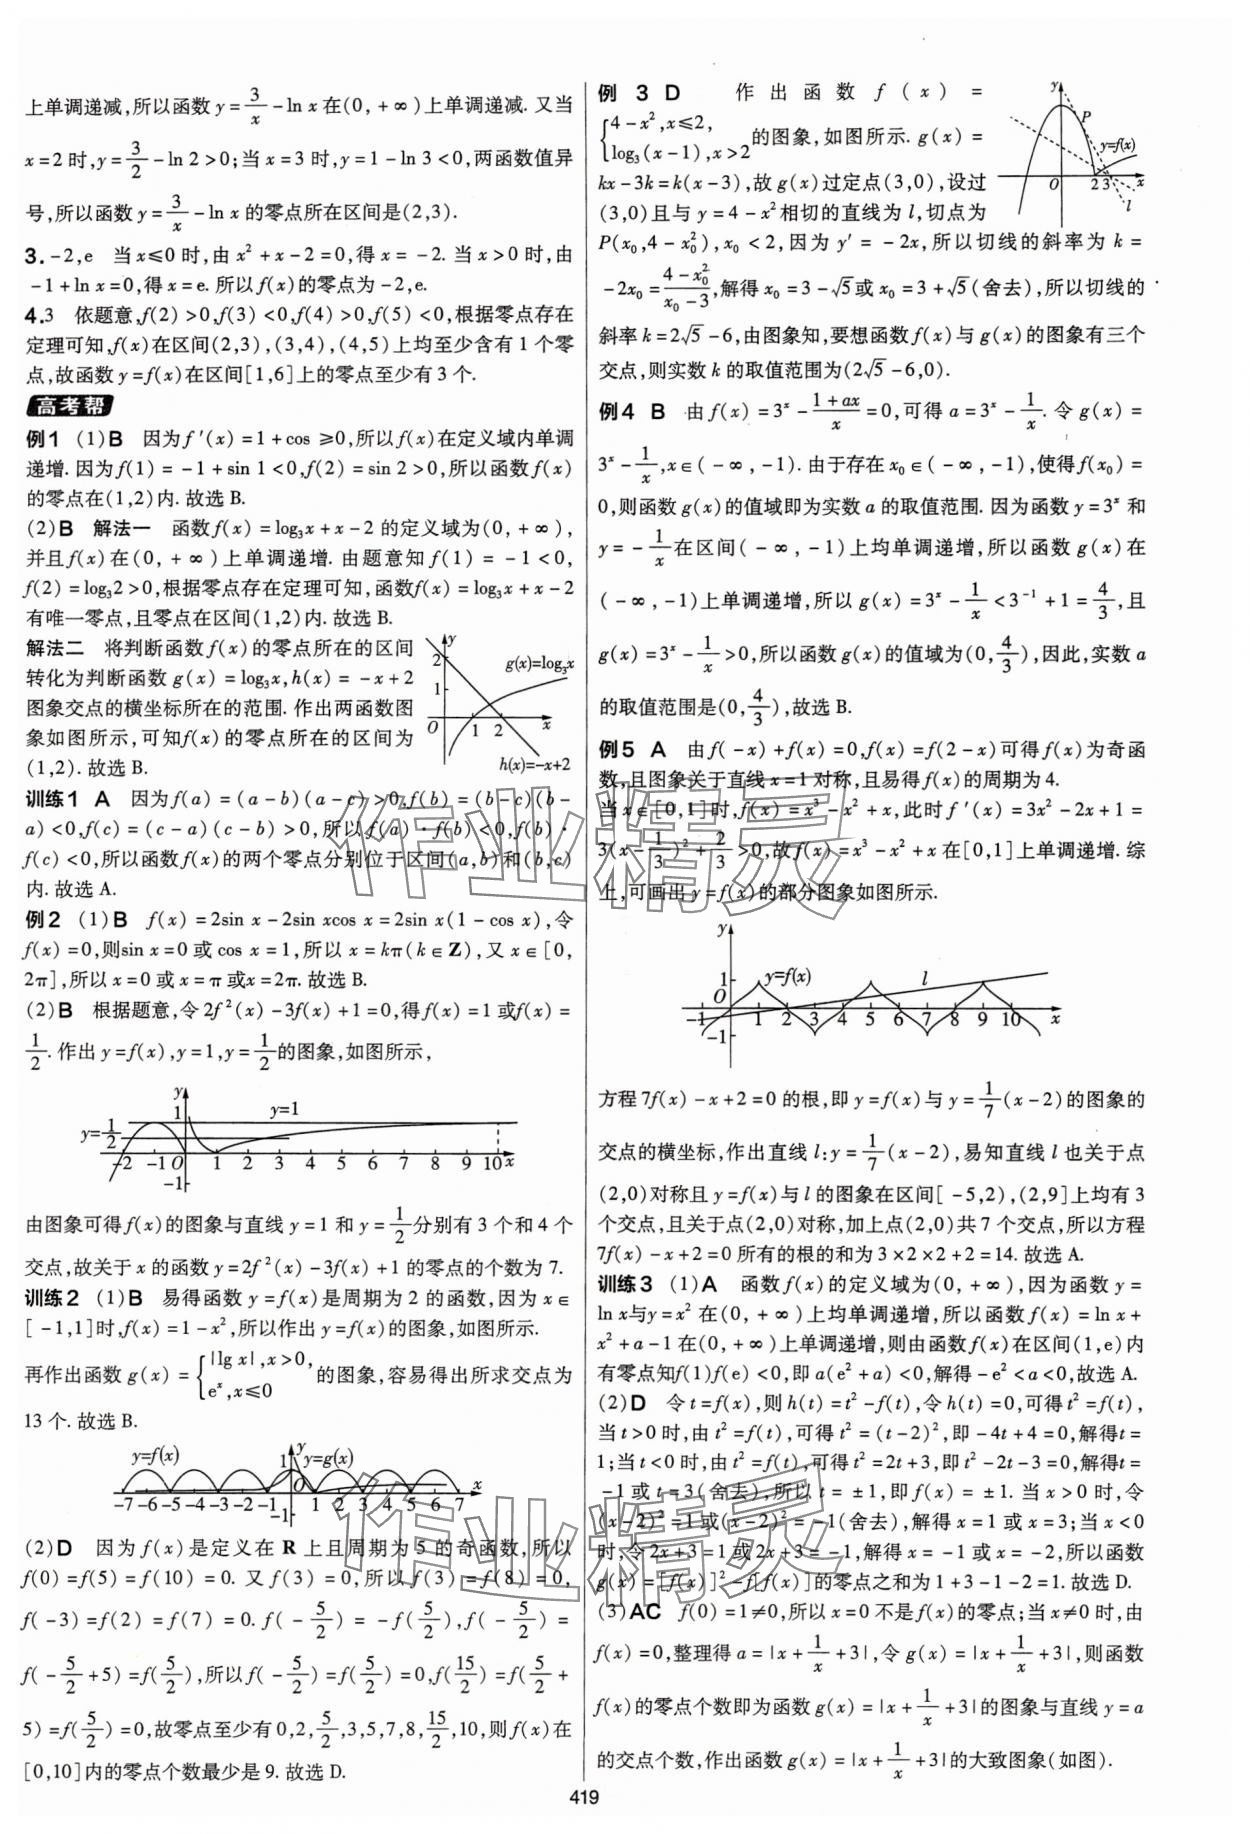 上单调递减,所以函数 y=3/x-ln x 在(0,+∞)上单调递减. 又当
x=2 时,y=3/2-ln 2>0;当 x=3 时,y=1-ln 3<0,两函数值异
号,所以函数 y=3/x-ln x 的零点所在区间是(2,3).
3. -2,e 当 x≤0 时,由 x²+x-2=0,得 x=-2. 当 x>0 时,由
-1+ln x=0,得 x=e. 所以 f(x)的零点为-2,e.
4. 3 依题意,f(2)>0,f(3)<0,f(4)>0,f(5)<0,根据零点存在
定理可知,f(x)在区间(2,3),(3,4),(4,5)上均至少含有 1 个零
点,故函数 y=f(x)在区间[1,6]上的零点至少有 3 个.
高考帮
例1 (1)B 因为 f′(x)=1+cos ≥0,所以 f(x)在定义域内单调
递增. 因为 f(1)=-1+sin 1<0,f(2)=sin 2>0,所以函数 f(x)
的零点在(1,2)内. 故选 B.
(2)B 解法一 函数 f(x)=log₃x+x-2 的定义域为(0,+∞),
并且 f(x)在(0,+∞)上单调递增. 由题意知 f(1)=-1<0,
f(2)=log₃2>0,根据零点存在定理可知,函数 f(x)=log₃x+x-2
有唯一零点,且零点在区间(1,2)内. 故选 B.
解法二 将判断函数 f(x)的零点所在的区间
转化为判断函数 g(x)=log₃x,h(x)=-x+2
图象交点的横坐标所在的范围. 作出两函数图
象如图所示,可知 f(x)的零点所在的区间为
(1,2). 故选 B.
y 2 1 O 1 2 x g(x)=log₃x h(x)=-x+2
训练1 A 因为 f(a)=(a-b)(a-c)>0,f(b)=(b-c)(b-
a)<0,f(c)=(c-a)(c-b)>0,所以 f(a)·f(b)<0,f(b)·
f(c)<0,所以函数 f(x)的两个零点分别位于区间(a,b)和(b,c)
内. 故选 A.
例2 (1)B f(x)=2sin x-2sin xcos x=2sin x(1-cos x),令
f(x)=0,则sin x=0 或 cos x=1,所以 x=kπ(k∈Z),又 x∈[0,
2π],所以 x=0 或 x=π 或x=2π. 故选 B.
(2)B 根据题意,令 2f²(x)-3f(x)+1=0,得 f(x)=1 或f(x)=
1/2. 作出 y=f(x),y=1,y=1/2的图象,如图所示,
y 1 y=1 y=1/2 -2 -1 O 1 2 3 4 5 6 7 8 9 10 x -1
由图象可得 f(x)的图象与直线 y=1 和 y=1/2分别有 3 个和 4 个
交点,故关于 x 的函数 y=2f²(x)-3f(x)+1 的零点的个数为 7.
训练2 (1)B 易得函数 y=f(x)是周期为 2 的函数,因为 x∈
[-1,1]时,f(x)=1-x²,所以作出 y=f(x)的图象,如图所示.
再作出函数 g(x)={|lg x|,x>0, eˣ,x≤0 的图象,容易得出所求交点为
13 个. 故选 B.
y=f(x) 1 y y=g(x) -7 -6 -5 -4 -3 -2 -1 O 1 2 3 4 5 6 7 x -1
(2)D 因为 f(x)是定义在 R 上且周期为 5 的奇函数,所以
f(0)=f(5)=f(10)=0. 又 f(3)=0,所以 f(3)=f(8)=0,
f(-3)=f(2)=f(7)=0. f(-5/2)=-f(5/2),f(-5/2)=
f(-5/2+5)=f(5/2),所以 f(-5/2)=f(5/2)=0,f(15/2)=f(5/2+
5)=f(5/2)=0,故零点至少有 0,2,5/2,3,5,7,8,15/2,10,则 f(x)在
[0,10]内的零点个数最少是 9. 故选 D.
例3 D 作出函数 f(x)=
{4-x²,x≤2, log₃(x-1),x>2 的图象,如图所示. g(x)=
kx-3k=k(x-3),故 g(x)过定点(3,0),设过
(3,0)且与 y=4-x²相切的直线为 l,切点为
y P y=f(x) O 2 3 x l
P(x₀,4-x₀²),x₀<2,因为 y′=-2x,所以切线的斜率为 k=
-2x₀=(4-x₀²)/(x₀-3),解得 x₀=3-√5或 x₀=3+√5(舍去),所以切线的
斜率 k=2√5-6,由图象知,要想函数 f(x)与 g(x)的图象有三个
交点,则实数 k 的取值范围为(2√5-6,0).
例4 B 由 f(x)=3ˣ-(1+ax)/x=0,可得 a=3ˣ-1/x. 令 g(x)=
3ˣ-1/x,x∈(-∞,-1). 由于存在 x₀∈(-∞,-1),使得 f(x₀)=
0,则函数 g(x)的值域即为实数 a 的取值范围. 因为函数 y=3ˣ 和
y=-1/x在区间(-∞,-1)上均单调递增,所以函数 g(x)在
(-∞,-1)上单调递增,所以 g(x)=3ˣ-1/x<3⁻¹+1=4/3,且
g(x)=3ˣ-1/x>0,所以函数 g(x)的值域为(0,4/3),因此,实数 a
的取值范围是(0,4/3),故选 B.
例5 A 由 f(-x)+f(x)=0,f(x)=f(2-x)可得 f(x)为奇函
数,且图象关于直线 x=1 对称,且易得 f(x)的周期为 4.
当 x∈[0,1]时,f(x)=x³-x²+x,此时 f′(x)=3x²-2x+1=
3(x-1/3)²+2/3>0,故 f(x)=x³-x²+x 在[0,1]上单调递增. 综
上,可画出 y=f(x)的部分图象如图所示.
y 1 y=f(x) l O -1 1 2 3 4 5 6 7 8 9 10 x -1
方程 7f(x)-x+2=0 的根,即 y=f(x)与 y=1/7(x-2)的图象的
交点的横坐标,作出直线 l:y=1/7(x-2),易知直线 l 也关于点
(2,0)对称且 y=f(x)与 l 的图象在区间[-5,2),(2,9]上均有 3
个交点,且关于点(2,0)对称,加上点(2,0)共 7 个交点,所以方程
7f(x)-x+2=0 所有的根的和为 3×2×2+2=14. 故选 A.
训练3 (1)A 函数 f(x)的定义域为(0,+∞),因为函数 y=
ln x与y=x² 在(0,+∞)上均单调递增,所以函数 f(x)=ln x+
x²+a-1 在(0,+∞)上单调递增,则由函数 f(x)在区间(1,e)内
有零点知f(1)f(e)<0,即 a(e²+a)<0,解得-e²<a<0,故选 A.
(2)D 令 t=f(x),则 h(t)=t²-f(t),令 h(t)=0,可得 t²=f(t),
当 t>0 时,由 t²=f(t),可得 t²=(t-2)²,即-4t+4=0,解得t=
1;当 t<0 时,由 t²=f(t),可得 t²=2t+3,即t²-2t-3=0,解得t=
-1或 t=3(舍去),所以 t=±1,即 f(x)=±1. 当 x>0 时,令
(x-2)²=1 或(x-2)²=-1(舍去),解得 x=1 或 x=3;当 x<0
时,令 2x+3=1 或 2x+3=-1,解得 x=-1 或 x=-2,所以函数
g(x)=[f(x)]²-f[f(x)]的零点之和为 1+3-1-2=1. 故选 D.
(3)AC f(0)=1≠0,所以 x=0 不是 f(x)的零点;当 x≠0 时,由
f(x)=0,整理得 a=|x+1/x+3|,令 g(x)=|x+1/x+3|,则函数
f(x)的零点个数即为函数 g(x)=|x+1/x+3|的图象与直线 y=a
的交点个数,作出函数 g(x)=|x+1/x+3|的大致图象(如图).
419
作业精灵
作业精灵